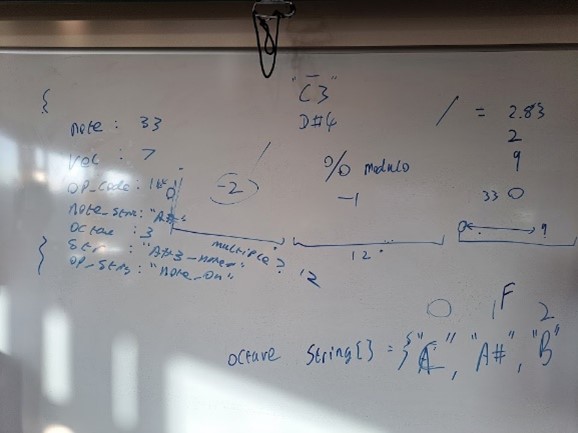 {
note : 33
vel : 7
op_code :
note_str: "A#"
octave : 3
str : "A#3-note"
op_str: "note_on"
}
"C3"
D#4
-2
% modulo
-1
/ = 2.83
2
9
33 0
multiple ?
12
12
0 9
0 1 F 2
octave String[] = {"C", "A#", "B"